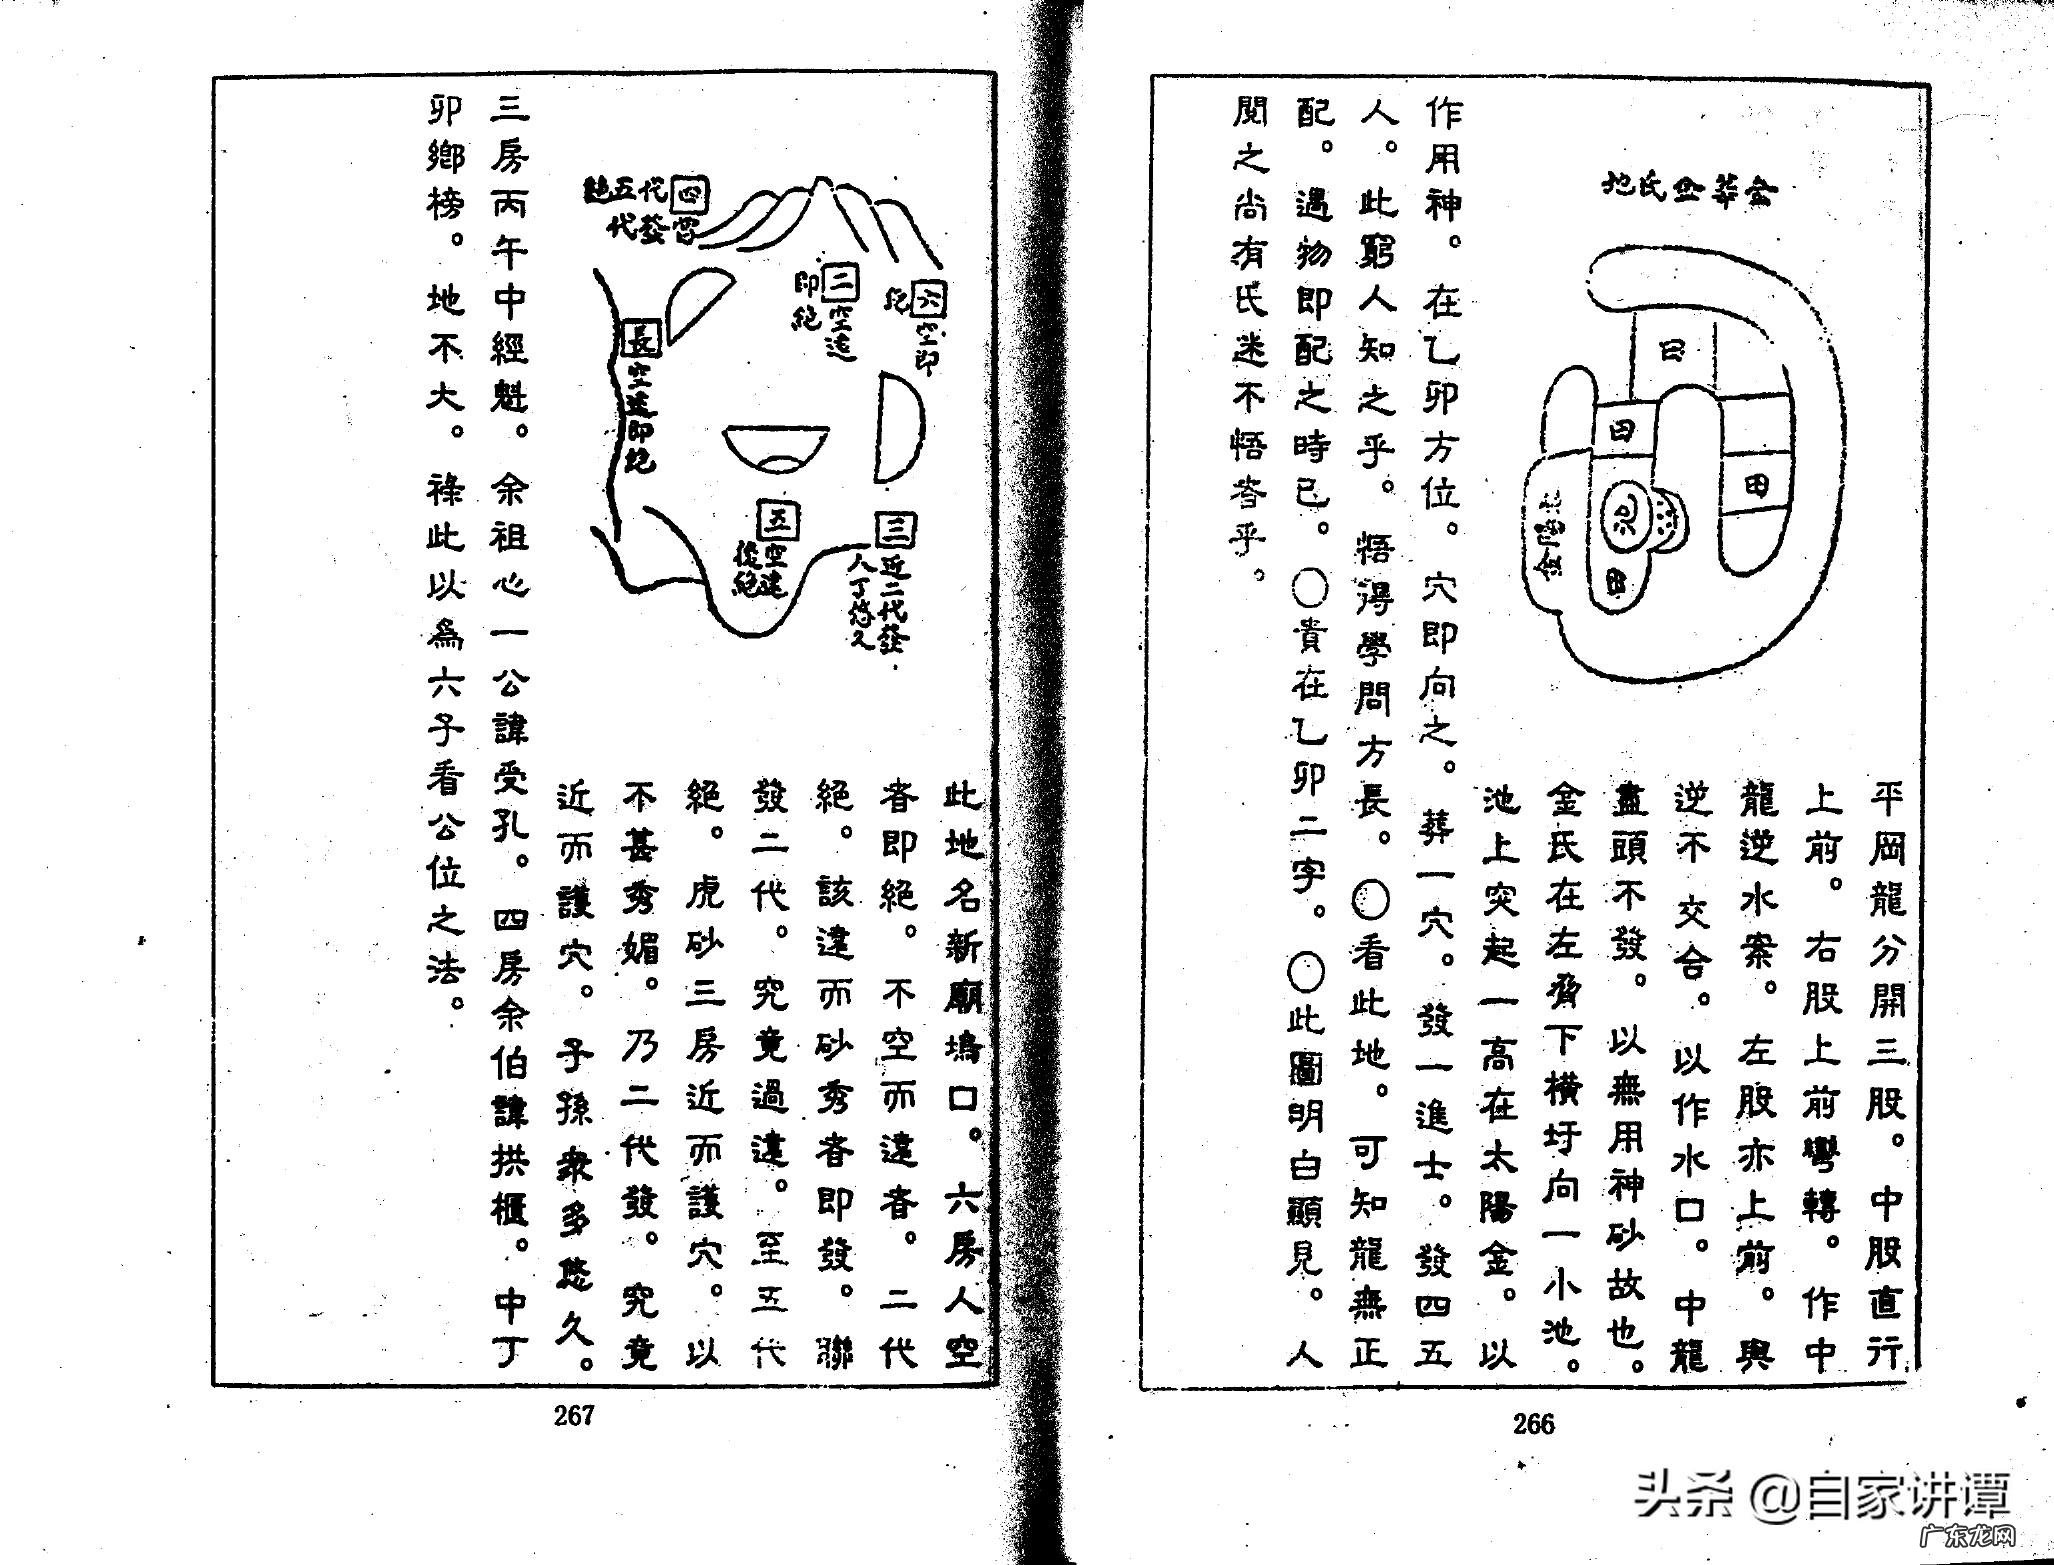 余葬金氏地
田
田
田
田
池
太陽金
平岡龍分開三股。中股直行
上前。右股上前彎轉。作中
龍逆水案。左股亦上前。與
逆不交合。以作水口。中龍
盡頭不發。以無用神砂故也。
金氏在左脅下橫圩向一小池。
池上突起一高在太陽金。以
作用神。在乙卯方位。穴即向之。葬一穴。發一進士。發四五
人。此窮人知之乎。悟得學問方長。○看此地。可知龍無正
配。遇物即配之時已。○貴在乙卯二字。○此圖明白顯見。人
閱之尚有氏迷不悟者乎。
266
四富
代發
五代
代絕
二空遠
即絕
六空即
絕
長空遠即絕
五空遠
後絕
三近二代發
人丁悠久
此地名新廟塢口。六房人空
者即絕。不空而遠者。二代
絕。該遠而砂秀者即發。聯
發二代。究竟過遠。至五代
絕。虎砂三房近而護穴。以
不甚秀媚。乃二代發。究竟
近而護穴。子孫衆多悠久。
三房丙午中經魁。余祖心一公諱受孔。四房余伯諱拱樞。中丁
卯鄉榜。地不大。祿此以為六子看公位之法。
267
头条 @自家讲谭
广东龙网